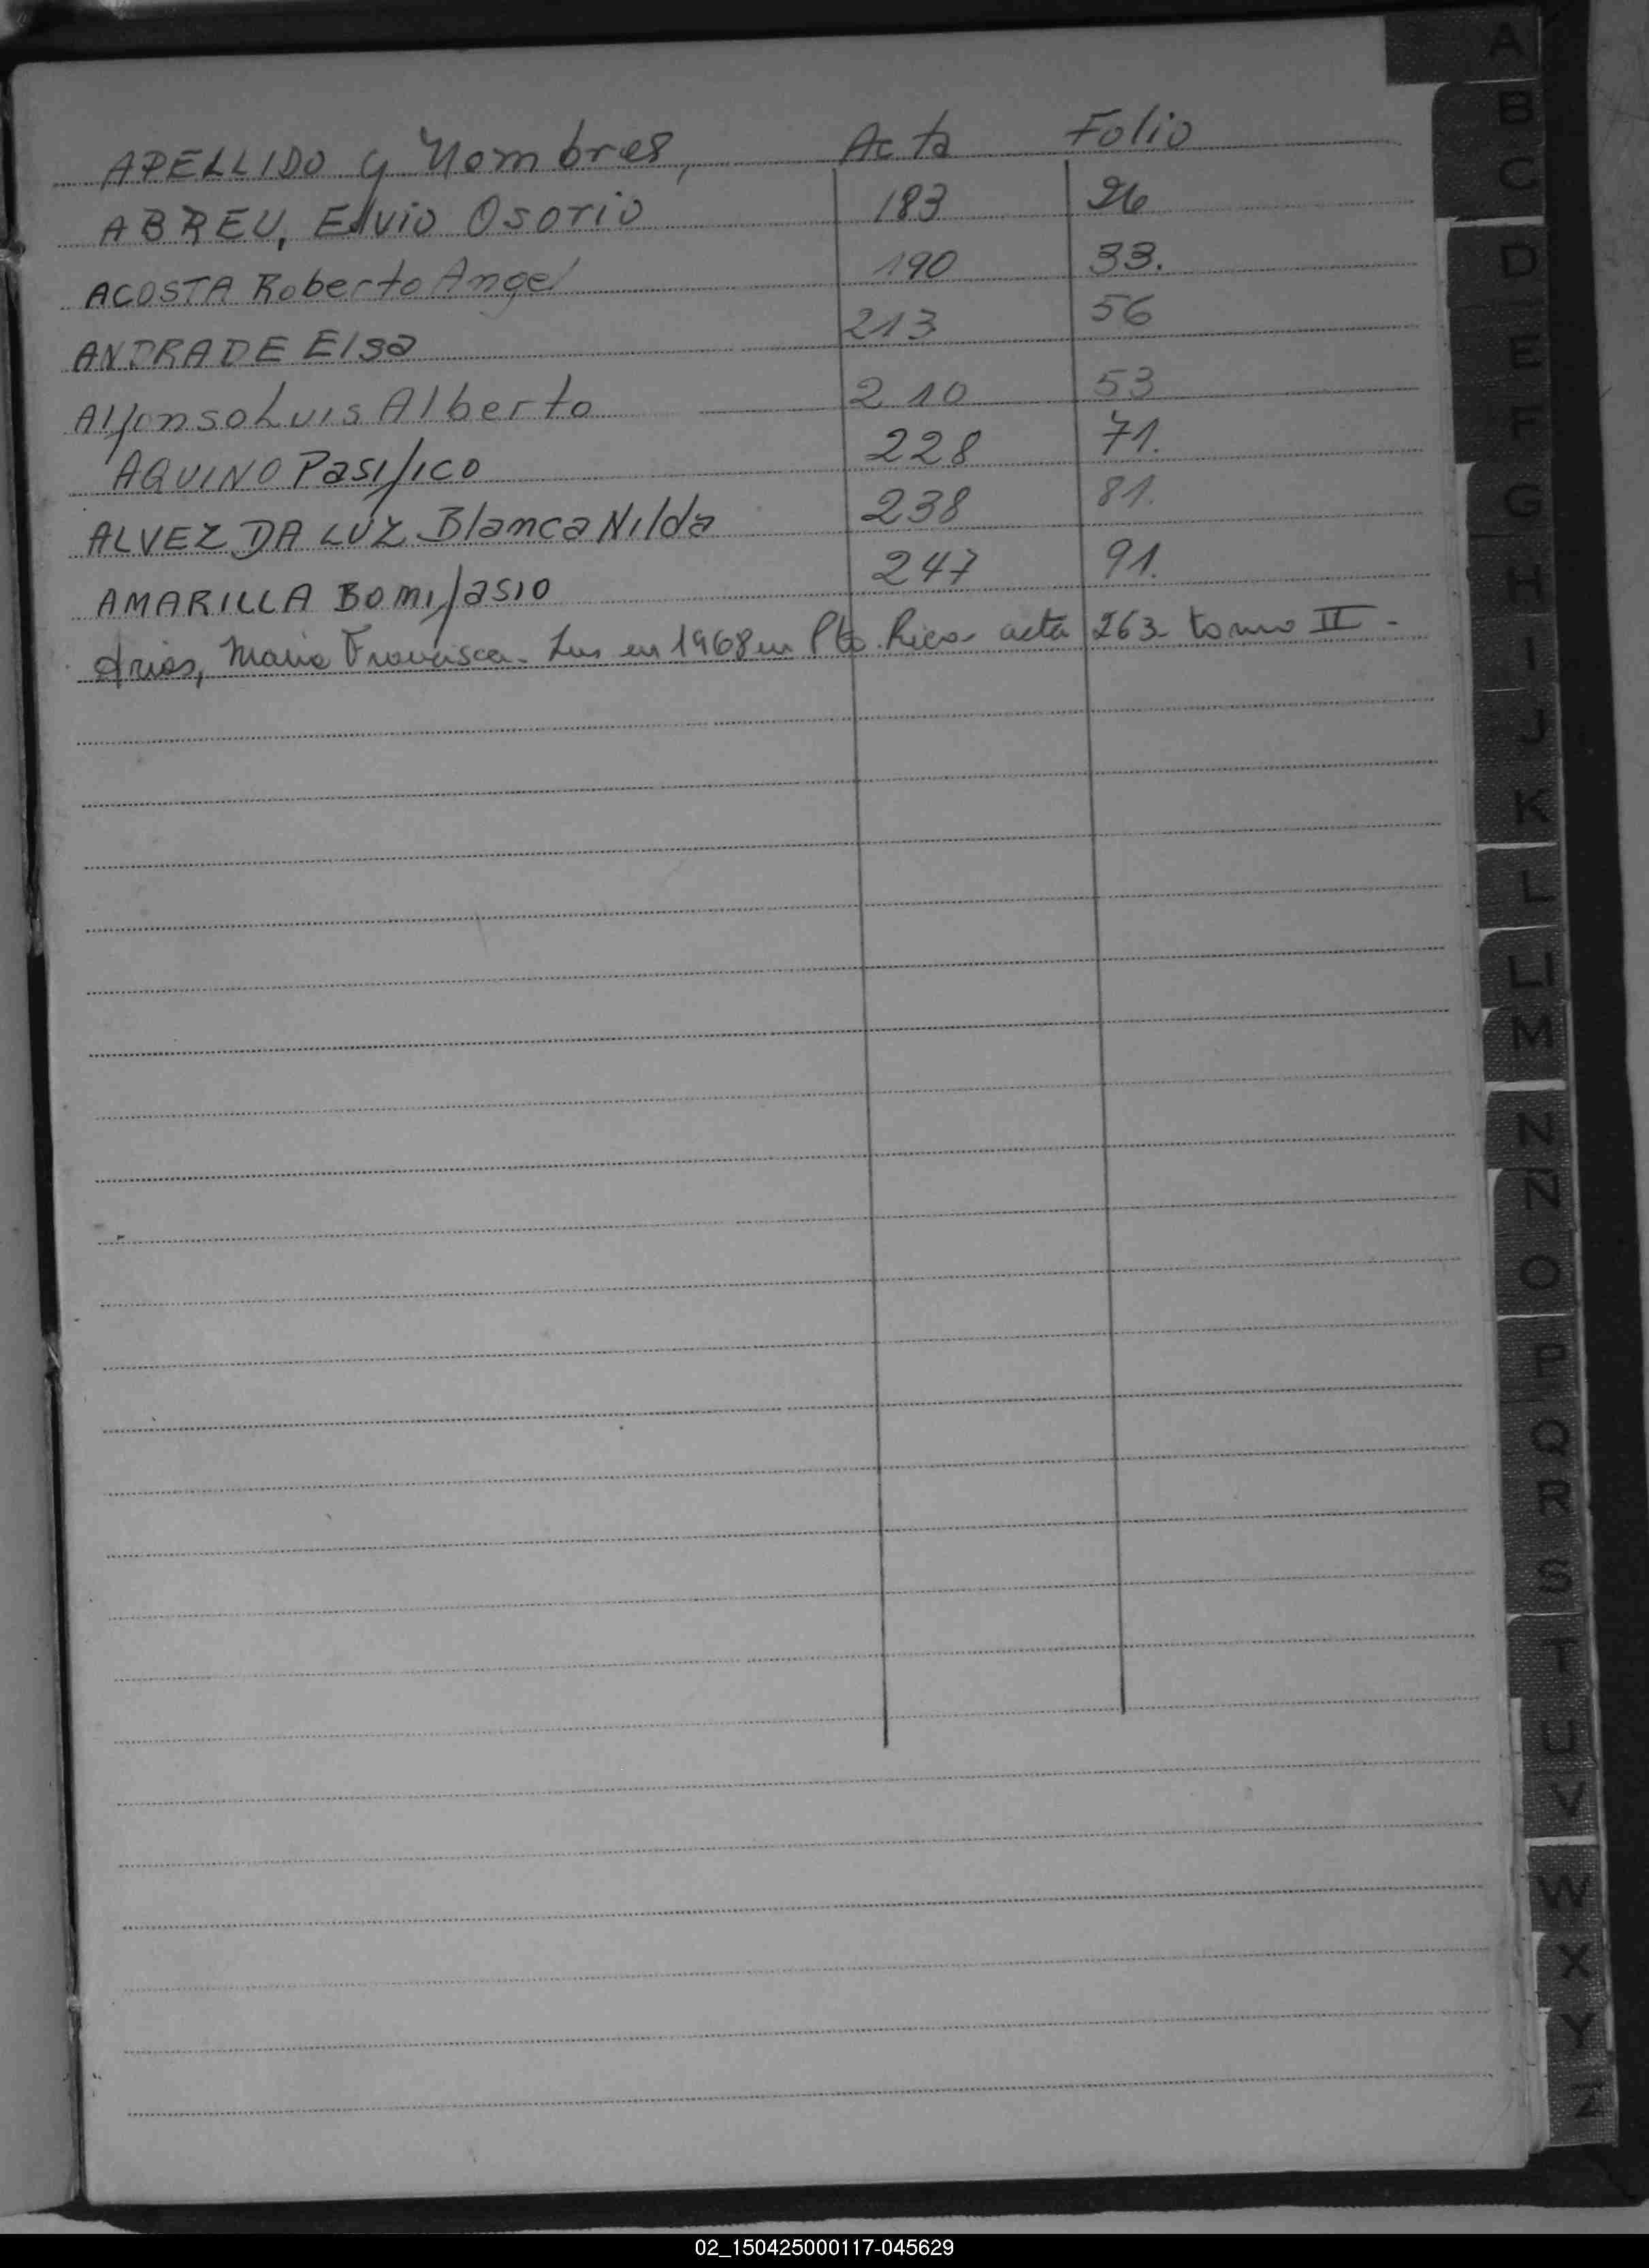 APELLIDO y Nombres, Acta Folio
ABREU, Elvio Osorio 183 26
ACOSTA Roberto Angel 190 33.
ANDRADE Elsa 213 56
Alfonso Luis Alberto 210 53
AQUINO Pasifico 228 71.
ALVEZ DA LUZ Blanca Nilda 238 81.
AMARILLA Bomifasio 247 91.
Arias, Maria Francisca - Ins en 1968 en Pto. Rico - acta 263 - tomo II -
A
B
C
D
E
F
G
H
I
J
K
L
LL
M
N
Ñ
O
P
Q
R
S
T
U
V
W
X
Y
Z
02_150425000117-045629